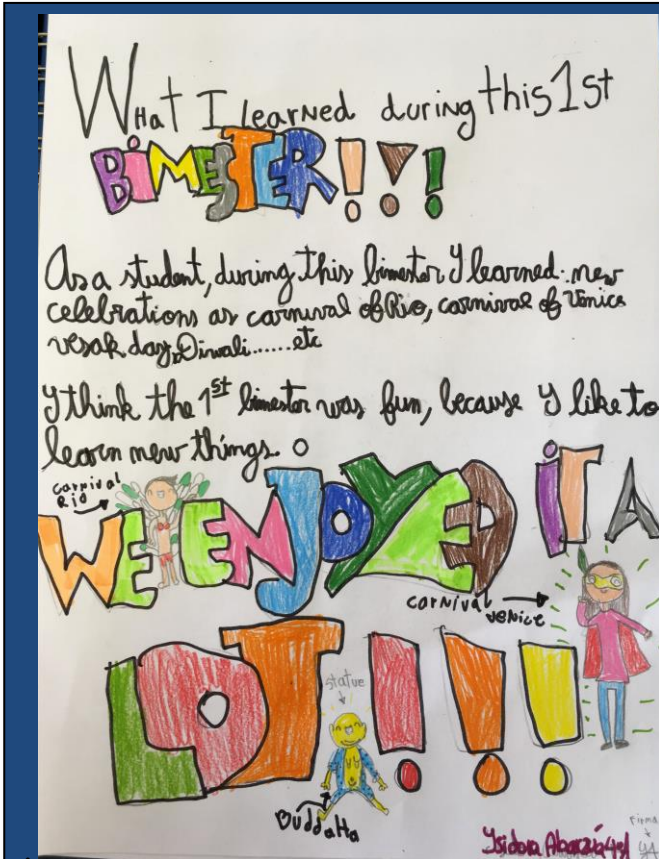 What I learned during this 1st
BIMESTER!!!
As a student, during this bimester I learned new
celebrations as carnival of Rio, carnival of Venice
vesak day, Diwali......etc
I think the 1st bimester was fun, because I like to
learn new things.
carnival
Rio
WE ENJOYED IT A
carnival
venice
LOT!!!
statue
Buddatta
Isidora
firma